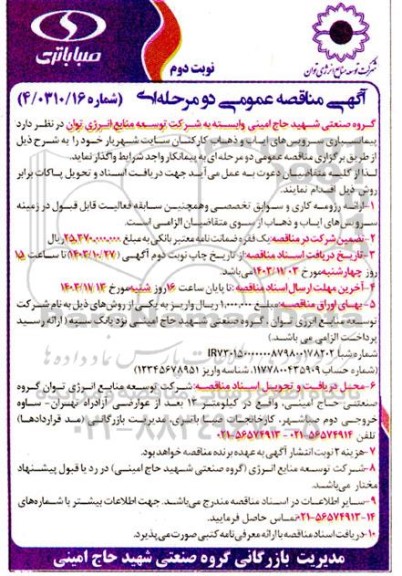 صباباتری
شرکت توسعه منابع انرژی توان
نوبت دوم
آگهی مناقصه عمومی دو مرحله‌ای (شماره ۴/۰۳۱۰/۱۶)
گروه صنعتی شهید حاج امینی وابسته به شرکت توسعه منابع انرژی توان در نظر دارد
پیمانسپاری سرویس‌های ایاب و ذهاب کارکنان سایت شهریار خود را به شرح ذیل
از طریق برگزاری مناقصه عمومی دو مرحله ای به پیمانکار واجد شرایط واگذار نماید.
لذا از کلیه متقاضیان دعوت به عمل می‌آید جهت دریافت اسناد و تحویل پاکات برابر
روش ذیل اقدام نمایند.
۱-ارائه رزومه کاری و سوابق تخصصی وهمچنین سابقه فعالیت قابل قبول در زمینه
سرویس‌های ایاب و ذهاب از سوی متقاضیان الزامی است.
۲-تضمین شرکت در مناقصه: یک فقره ضمانت نامه معتبر بانکی به مبلغ ۲۵,۳۷۰,۰۰۰,۰۰۰ ریال
۳-تاریخ دریافت اسناد مناقصه: از تاریخ چاپ نوبت دوم آگهی (۱۴۰۳/۱۰/۲۷) تا ساعت ۱۵
روز چهارشنبه مورخ ۱۴۰۳/۱۱/۰۳ می‌باشد.
۴-آخرین مهلت ارسال اسناد مناقصه: تا پایان ساعت ۱۶ روز شنبه مورخ ۱۴۰۳/۱۱/۱۳
۵-بهای اوراق مناقصه: مبلغ ۱,۰۰۰,۰۰۰ ریال واریز به یکی از روش‌های ذیل به نام شرکت
توسعه منابع انرژی توان (گروه صنعتی شهید حاج امینی نزد بانک سپه (ارائه رسید
پرداخت الزامی می باشد.)
(شماره حساب ۱۱۷۷۸۰۰۴۳۵۹۰۹ شناسه واریز ۱۲۳۴۵۶۷۸۹۵۱)
۶-محل دریافت و تحویل اسناد مناقصه: شرکت توسعه منابع انرژی توان گروه
صنعتی حاج امینی، واقع در کیلومتر ۱۲ بعد از عوارضی آزادراه تهران-ساوه
خروجی دوم صباشهر، کارخانجات صبا باتری، مدیریت بازرگانی (مد قراردادها)
تلفن ۵۶۵۷۴۹۱۴-۰۲۱ - ۵۶۵۷۴۹۱۳-۰۲۱
۷-هزینه ۲ نوبت انتشار آگهی به عهده برنده مناقصه خواهد بود.
۸-شرکت توسعه منابع انرژی (گروه صنعتی شهید حاج امینی) در رد یا قبول پیشنهاد
مختار می‌باشد.
۹-سایر اطلاعات در اسناد مناقصه مندرج می‌باشد. جهت اطلاعات بیشتر با شماره‌های
۱۴-۵۶۵۷۴۹۱۳-۰۲۱ تماس حاصل فرمایید.
۱۰-دریافت اسناد مناقصه با ارائه معرفی نامه کتبی صورت می‌پذیرد.
مدیریت بازرگانی گروه صنعتی شهید حاج امینی